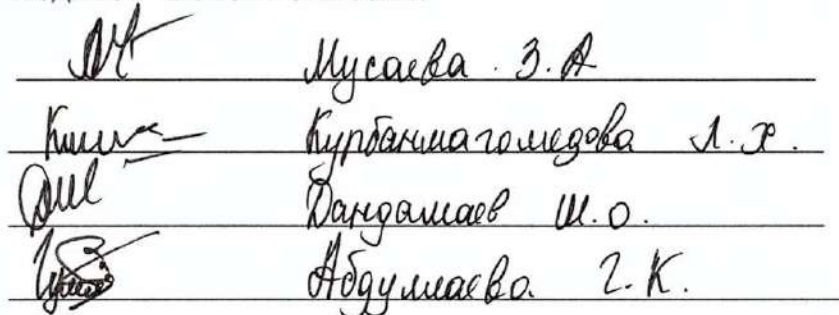 Мусаева З.А
Курбанмагомедова Л.Х.
Дандамаев Ш.О.
Абдуллаева Г.К.